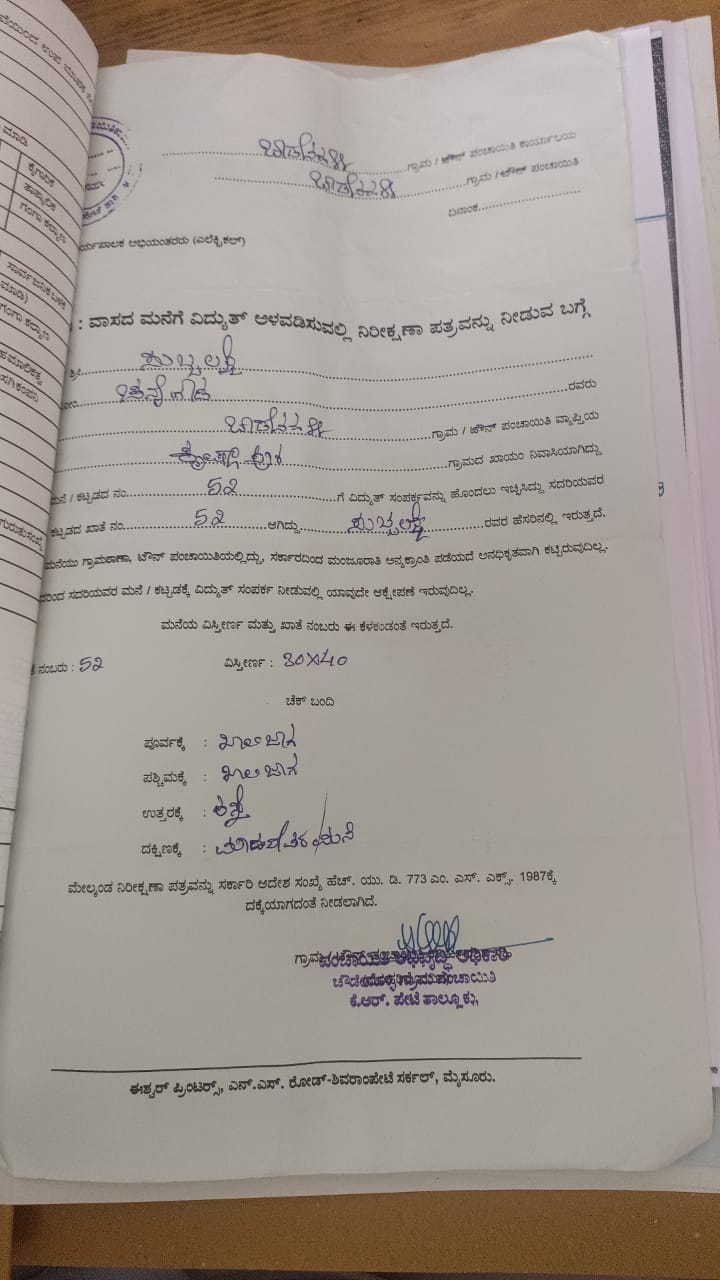 ಗ್ರಾಮ / ಟೌನ್ ಪಂಚಾಯಿತಿ ಕಾರ್ಯಾಲಯ
ಗ್ರಾಮ / ಟೌನ್ ಪಂಚಾಯಿತಿ
ದಿನಾಂಕ
ರ್ಯಪಾಲಕ ಅಭಿಯಂತರರು (ಎಲೆಕ್ಟ್ರಿಕಲ್)
: ವಾಸದ ಮನೆಗೆ ವಿದ್ಯುತ್ ಅಳವಡಿಸುವಲ್ಲಿ ನಿರೀಕ್ಷಣಾ ಪತ್ರವನ್ನು ನೀಡುವ ಬಗ್ಗೆ
ಶ್ರೀ. ಸುಬ್ಬಲಕ್ಷ್ಮಿ
ರವರು
ಗ್ರಾಮ / ಟೌನ್ ಪಂಚಾಯಿತಿ ವ್ಯಾಪ್ತಿಯ
ಗ್ರಾಮದ ಖಾಯಂ ನಿವಾಸಿಯಾಗಿದ್ದು
ಮನೆ / ಕಟ್ಟಡದ ನಂ. 52 ಗೆ ವಿದ್ಯುತ್ ಸಂಪರ್ಕವನ್ನು ಹೊಂದಲು ಇಚ್ಛಿಸಿದ್ದು ಸದರಿಯವರ
ಕಟ್ಟಡದ ಖಾತೆ ನಂ. 52 ಆಗಿದ್ದು ಸುಬ್ಬಲಕ್ಷ್ಮಿ ರವರ ಹೆಸರಿನಲ್ಲಿ ಇರುತ್ತದೆ.
ಮನೆಯು ಗ್ರಾಮಠಾಣಾ, ಟೌನ್ ಪಂಚಾಯಿತಿಯಲ್ಲಿದ್ದು, ಸರ್ಕಾರದಿಂದ ಮಂಜೂರಾತಿ ಅನ್ಯಕ್ರಾಂತಿ ಪಡೆಯದೆ ಅನಧಿಕೃತವಾಗಿ ಕಟ್ಟಿರುವುದಿಲ್ಲ.
ದರಿಂದ ಸದರಿಯವರ ಮನೆ / ಕಟ್ಟಡಕ್ಕೆ ವಿದ್ಯುತ್ ಸಂಪರ್ಕ ನೀಡುವಲ್ಲಿ ಯಾವುದೇ ಆಕ್ಷೇಪಣೆ ಇರುವುದಿಲ್ಲ.
ಮನೆಯ ವಿಸ್ತೀರ್ಣ ಮತ್ತು ಖಾತೆ ನಂಬರು ಈ ಕೆಳಕಂಡಂತೆ ಇರುತ್ತದೆ.
ನಂಬರು : 52 ವಿಸ್ತೀರ್ಣ : 30X40
ಚೆಕ್ ಬಂದಿ
ಪೂರ್ವಕ್ಕೆ : ಖಾಲಿ ಜಾಗ
ಪಶ್ಚಿಮಕ್ಕೆ : ಖಾಲಿ ಜಾಗ
ಉತ್ತರಕ್ಕೆ : ರಸ್ತೆ
ದಕ್ಷಿಣಕ್ಕೆ : ಮನೆ
ಮೇಲ್ಕಂಡ ನಿರೀಕ್ಷಣಾ ಪತ್ರವನ್ನು ಸರ್ಕಾರಿ ಆದೇಶ ಸಂಖ್ಯೆ ಹೆಚ್. ಯು. ಡಿ. 773 ಎಂ. ಎಸ್. ಎಕ್ಸ್. 1987ಕ್ಕೆ
ದಕ್ಕೆಯಾಗದಂತೆ ನೀಡಲಾಗಿದೆ.
ಪಂಚಾಯಿತಿ ಅಭಿವೃದ್ಧಿ ಅಧಿಕಾರಿ
ಗ್ರಾಮ ಪಂಚಾಯಿತಿ
ಕೆ.ಆರ್. ಪೇಟೆ ತಾಲ್ಲೂಕು,
ಈಶ್ವರ್ ಪ್ರಿಂಟರ್ಸ್, ಎನ್.ಎಸ್. ರೋಡ್-ಶಿವರಾಂಪೇಟೆ ಸರ್ಕಲ್, ಮೈಸೂರು.